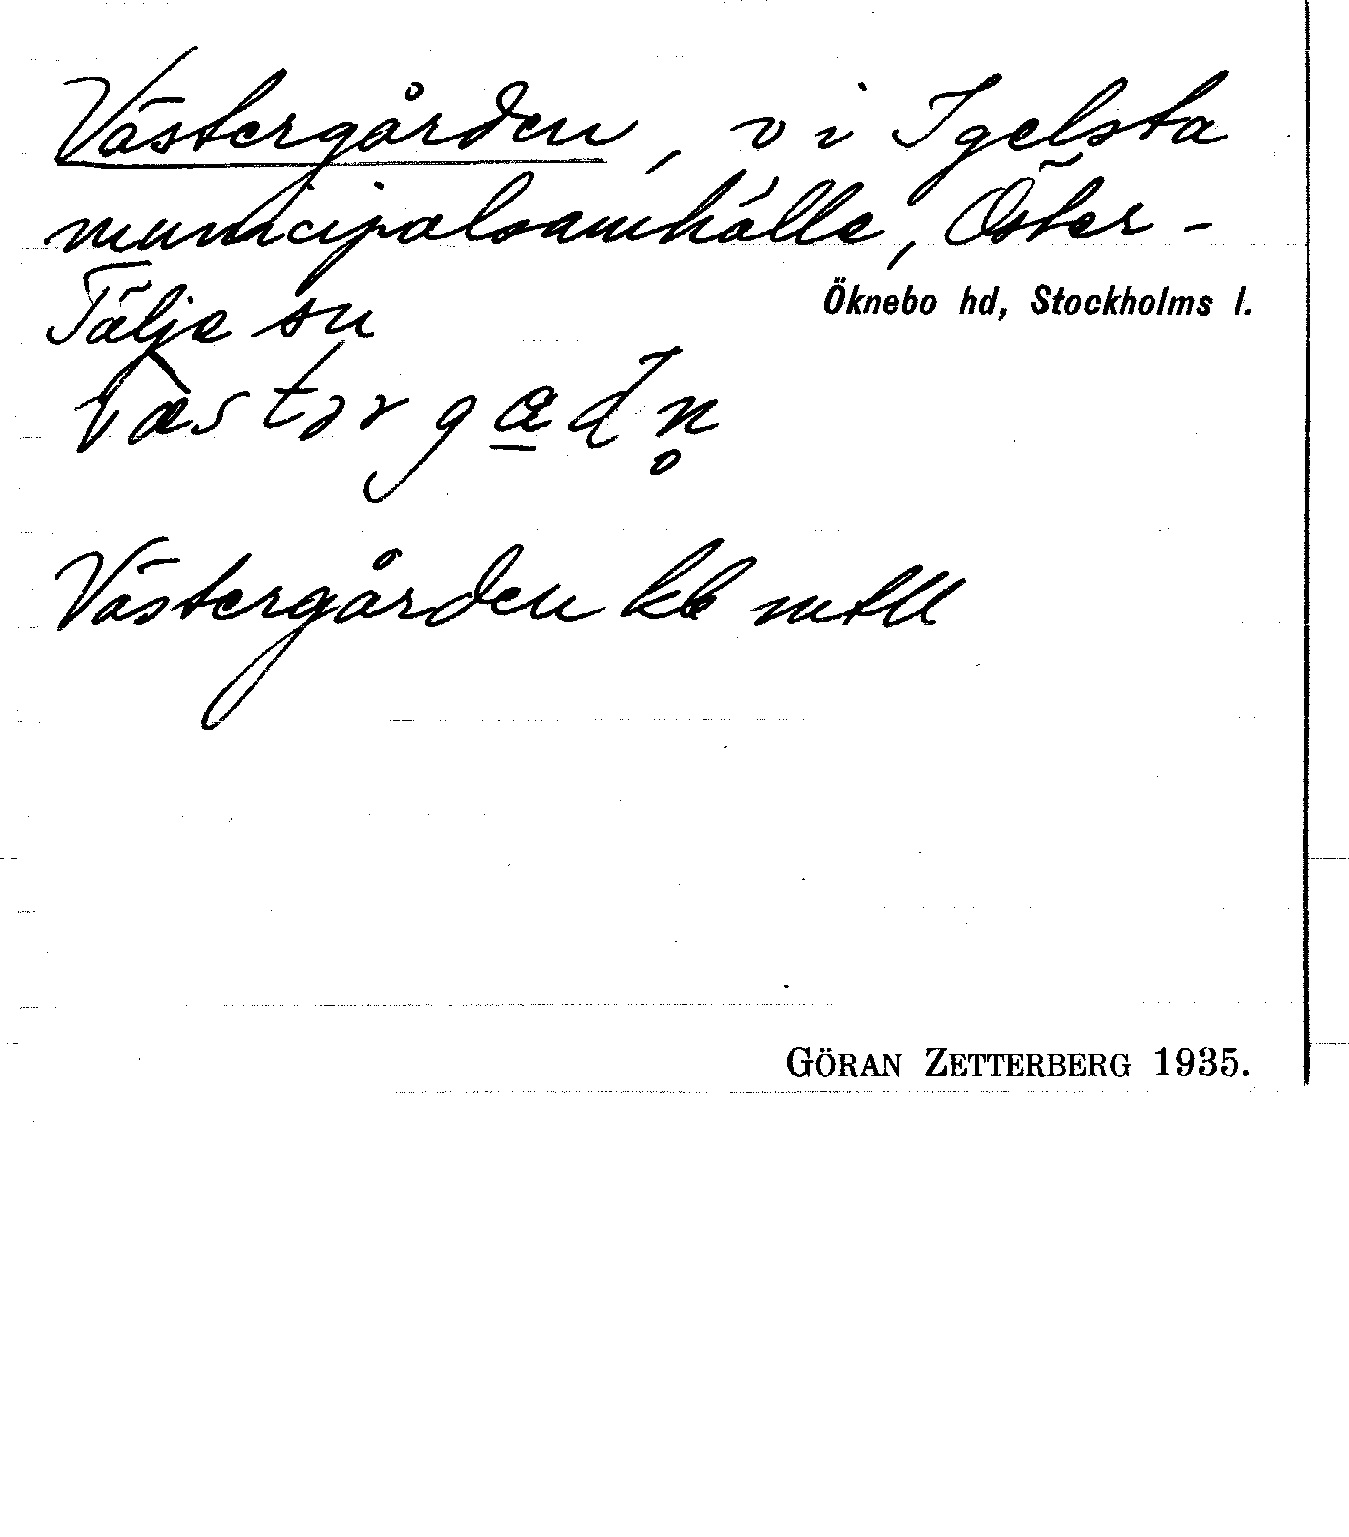 Västergården, v i Igelsta
municipalsamhälle, Öster-
Tälje sn
Öknebo hd, Stockholms l.
Västergården kb mtll
GÖRAN ZETTERBERG 1935.